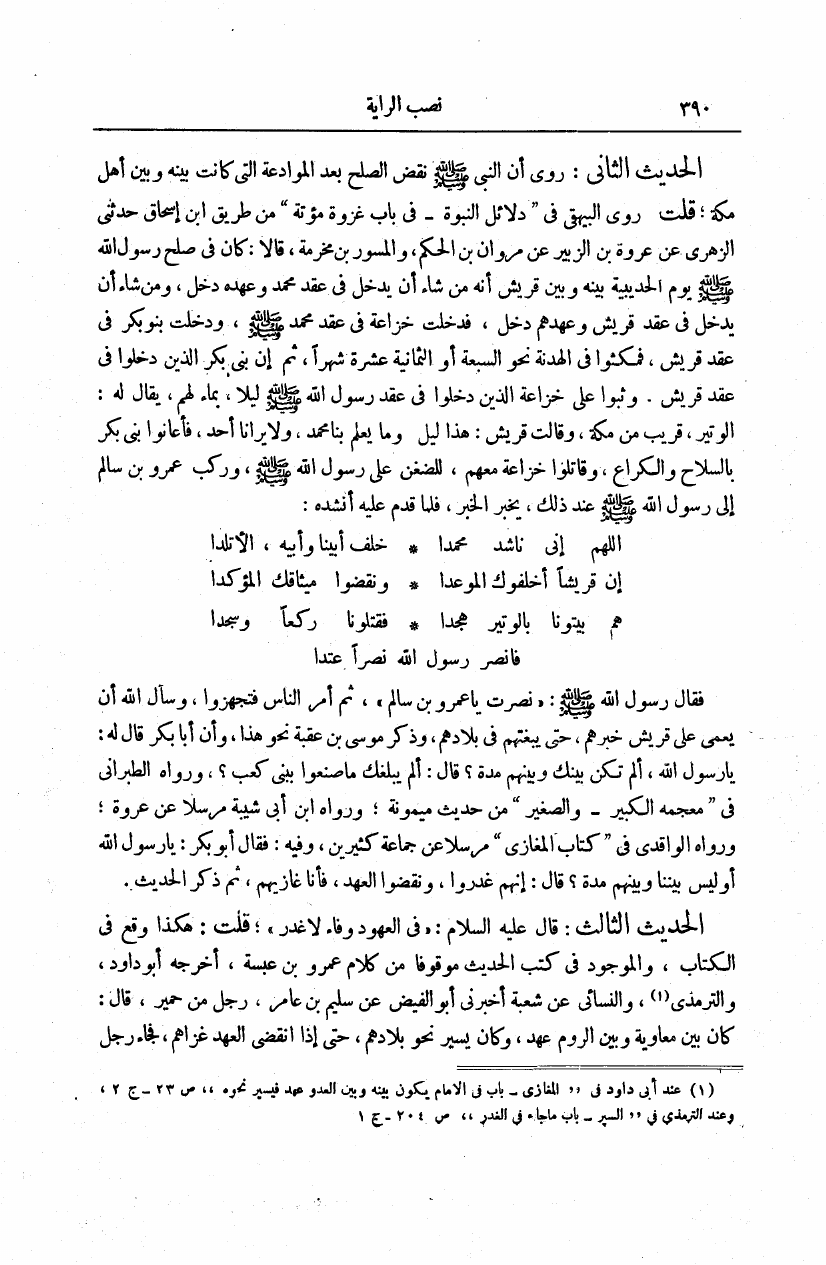 ٣٩٠ نصب الراية
الحديث الثانى : روى أن النبى ﷺ نقض الصلح بعد الموادعة التى كانت بينه وبين أهل
مكة ؛ قلت روى البيهقى فى " دلائل النبوة - فى باب غزوة مؤتة " من طريق ابن إسحاق حدثنى
الزهرى عن عروة بن الزبير عن مروان بن الحكم، والمسور بن مخرمة ، قالا : كان فى صلح رسول الله
ﷺ يوم الحديبية بينه وبين قريش أنه من شاء أن يدخل فى عقد محمد وعهده دخل ، ومن شاء أن
يدخل فى عقد قريش وعهدهم دخل ، فدخلت خزاعة فى عقد محمد ﷺ ، ودخلت بنو بكر فى
عقد قريش ، فمكثوا فى الهدنة نحو السبعة أو الثمانية عشرة شهراً ، ثم إن بنى بكر الذين دخلوا فى
عقد قريش . وثبوا على خزاعة الذين دخلوا فى عقد رسول الله ﷺ ليلا ، بماء لهم ، يقال له :
الوتير ، قريب من مكة ، وقالت قريش : هذا ليل وما يعلم بنا محمد ، ولا يرانا أحد ، فأعانوا بنى بكر
بالسلاح والكراع ، وقاتلوا خزاعة معهم ، للضغن على رسول الله ﷺ ، وركب عمرو بن سالم
إلى رسول الله ﷺ عند ذلك ، يخبر الخبر ، فلما قدم عليه أنشده :
اللهم إنى ناشد محمدا * خلف أبينا وأبيه ، الأتلدا
إن قريشاً أخلفوك الموعدا * ونقضوا ميثاقك المؤكدا
هم بيتونا بالوتير هجدا * فقتلونا ركعاً وسجدا
فانصر رسول الله نصراً عتدا
فقال رسول الله ﷺ : « نصرت ياعمرو بن سالم » ، ثم أمر الناس فتجهزوا ، وسأل الله أن
يعمى على قريش خبرهم ، حتى يبغتهم فى بلادهم ، وذكر موسى بن عقبة نحو هذا ، وأن أبا بكر قال له :
يارسول الله ، ألم تكن بينك وبينهم مدة ؟ قال : ألم يبلغك ماصنعوا ببنى كعب ؟ ، ورواه الطبرانى
فى " معجمه الكبير - والصغير " من حديث ميمونة ؛ ورواه ابن أبى شيبة مرسلا عن عروة ؛
ورواه الواقدى فى " كتاب المغازى " مرسلا عن جماعة كثيرين ، وفيه : فقال أبو بكر : يارسول الله
أو ليس بيننا وبينهم مدة ؟ قال : إنهم غدروا ، ونقضوا العهد ، فأنا غازيهم ، ثم ذكر الحديث .
الحديث الثالث : قال عليه السلام : « فى العهود وفاء لاغدر » ؛ قلت : هكذا وقع فى
الكتاب ، والموجود فى كتب الحديث موقوفا من كلام عمرو بن عبسة ، أخرجه أبو داود ،
والترمذى (١) ، والنسائى عن شعبة أخبرنى أبو الفيض عن سليم بن عامر ، رجل من حمير ، قال :
كان بين معاوية وبين الروم عهد ، وكان يسير نحو بلادهم ، حتى إذا انقضى العهد غزاهم ، فجاء رجل
(١) عند أبى داود فى ,, المغازى - باب فى الامام يكون بينه وبين العدو عهد فيسير نحوه ،، ص ٢٣ - ج ٢ ،
وعند الترمذى فى ,, السير - باب ماجاء فى الغدر ،، ص ٢٠٤ - ج ١